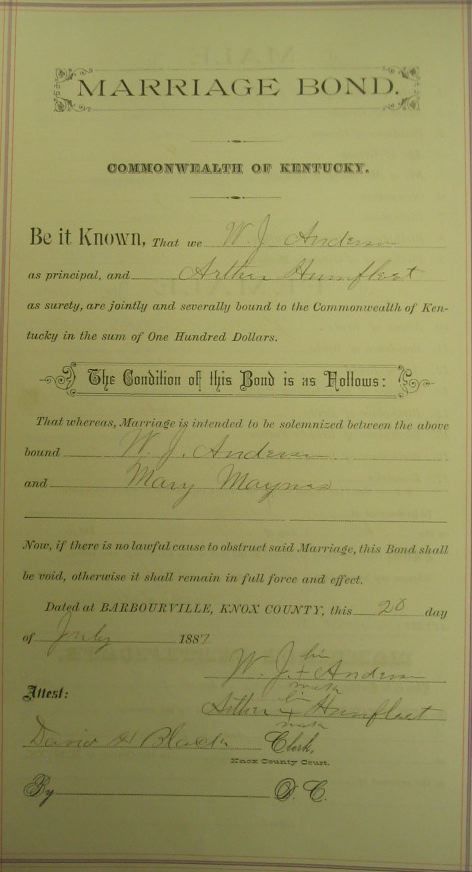 MARRIAGE BOND.
COMMONWEALTH OF KENTUCKY.
Be it Known, That we W. J. Anderson
as principal, and Arther Humfleet
as surety, are jointly and severally bound to the Commonwealth of Ken-
tucky in the sum of One Hundred Dollars.
The Condition of this Bond is as Follows:
That whereas, Marriage is intended to be solemnized between the above
bound W. J. Anderson
and Mary
Now, if there is no lawful cause to obstruct said Marriage, this Bond shall
be void, otherwise it shall remain in full force and effect.
Dated at BARBOURVILLE, KNOX COUNTY, this 20 day
of July 1887
his
W. J. x Anderson
mark
Attest:
his
Arther x Humfleet
mark
David H Clerk,
Knox County Court.
By D. C.